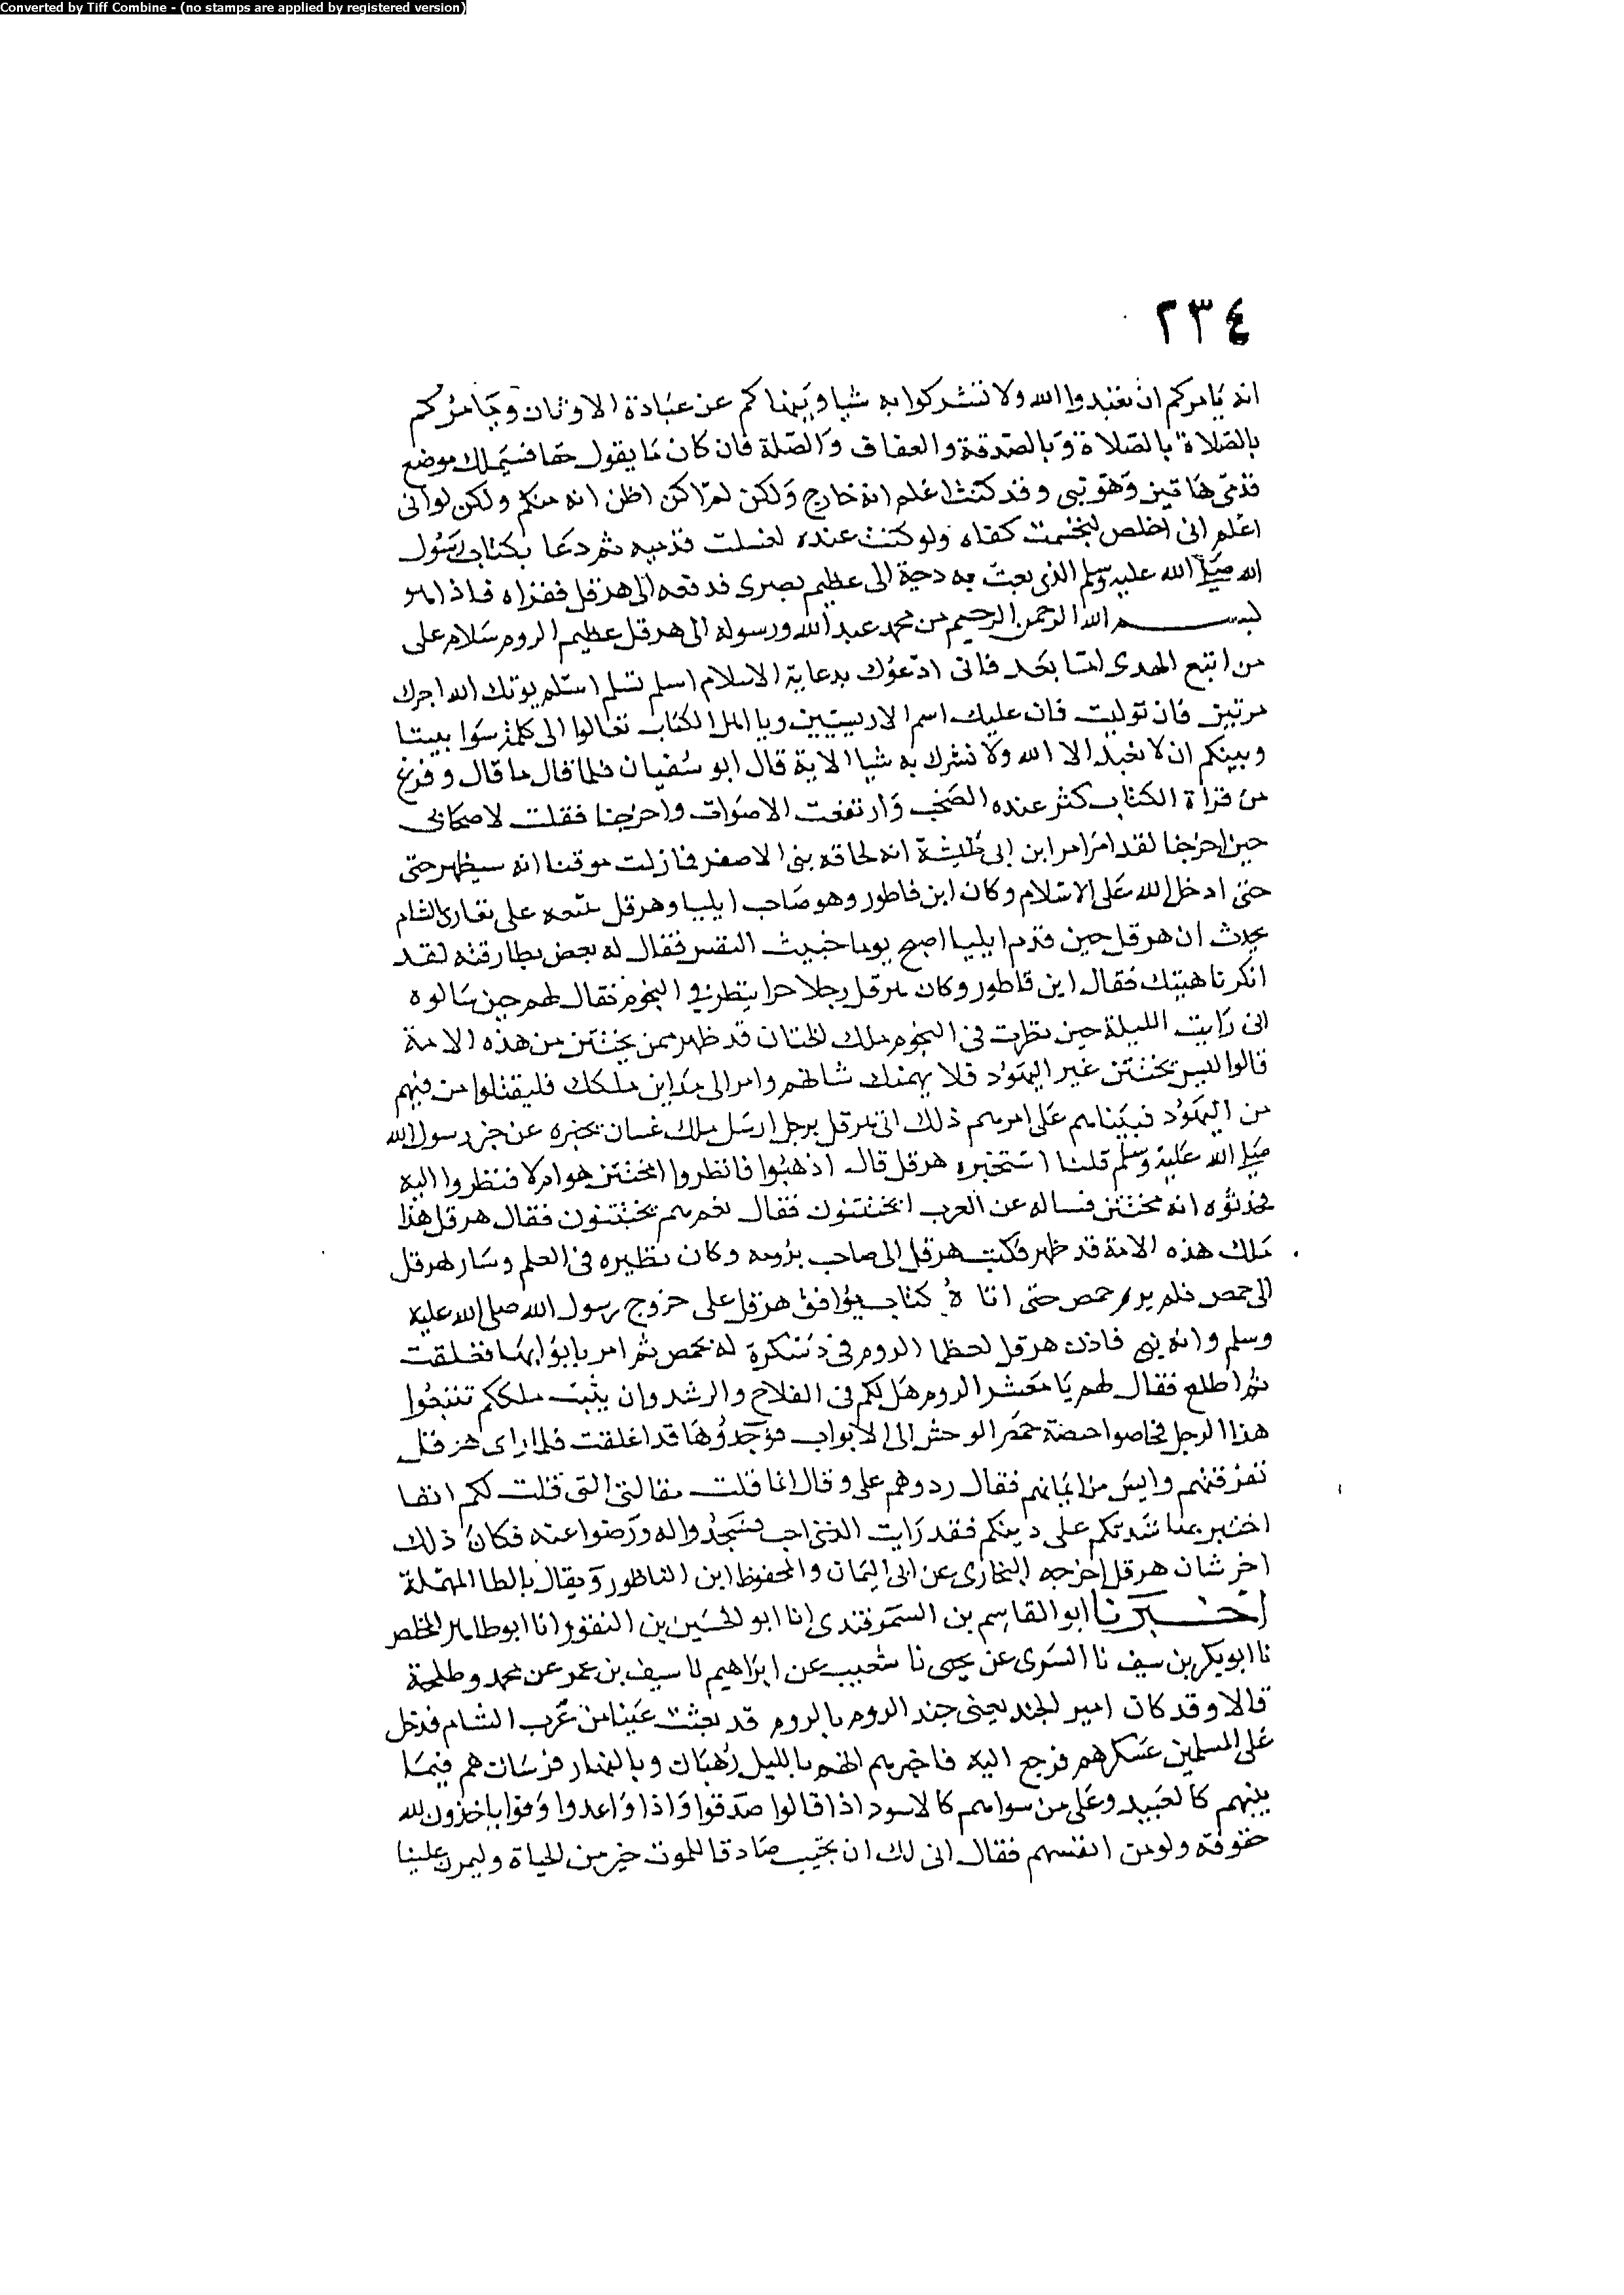 Converted by Tiff Combine - (no stamps are applied by registered version)
٢٣٤
انه يامركم ان تعبدوا الله ولا تشركوا به شيا وينهاكم عن عبادة الاوثان ويامركم
بالصلاة بالصلاة وبالصدقة والعفاف والصلة فان كان ما يقول حقا فسيملك موضع
قدمي هاتين وهو نبي وقد كنت اعلم انه خارج ولكن لم اكن اظن انه منكم ولكن لو اني
اعلم اني اخلص لتجشمت لقاه ولو كنت عنده لغسلت قدميه ثم دعا بكتاب رسول
الله صلى الله عليه وسلم الذي بعث به دحية الى عظيم بصرى فدفعه الى هرقل فقراه فاذا هو
بسم الله الرحمن الرحيم من محمد عبد الله ورسوله الى هرقل عظيم الروم سلام على
من اتبع الهدى اما بعد فاني ادعوك بدعاية الاسلام اسلم تسلم اسلم يوتك الله اجرك
مرتين فان توليت فان عليك اسم الاريسيين ويا اهل الكتاب تعالوا الى كلمة سوا بيننا
وبينكم ان لا نعبد الا الله ولا نشرك به شيا الاية قال ابو سفيان فلما قال ما قال وفرغ
من قراة الكتاب كثر عنده الصخب وارتفعت الاصوات واخرجنا فقلت لاصحابي
حين اخرجنا لقد امر امر ابن ابي كبشة انه لخافه بني الاصفر فما زلت موقنا انه سيظهر حتى
حتى ادخل الله على الاسلام وكان ابن فاطور وهو صاحب ايليا وهرقل على نصارى الشام
يحدث ان هرقل حين قدم ايليا اصبح يوما خبيث النفس فقال له بعض بطارقته لقد
انكرنا هيتك فقال ابن فاطور وكان هرقل رجلا حزا ينظر في النجوم فقال لهم حين سالوه
اني رايت الليلة حين نظرت في النجوم ملك الختان قد ظهر ممن يختتن من هذه الامة
قالوا ليس يختتن غير اليهود فلا يهمنك شانهم وامر الى مداين ملكك فليقتلوا من فيهم
من اليهود فبيناهم على امرهم ذلك اتى هرقل برجل ارسل ملك غسان يخبره عن خبر رسول الله
صلى الله عليه وسلم فلما استخبره هرقل قال اذهبوا فانظروا امختتن هو ام لا فنظروا اليه
فحدثوه انه مختتن فساله عن العرب ايختتنون فقال نعم هم يختتنون فقال هرقل هذا
ملك هذه الامة قد ظهر فكتب هرقل الى صاحب برومه وكان نظيره في العلم وسار هرقل
الى حمص فلم يرم حمص حتى اتاه كتاب يوافق هرقل على خروج رسول الله صلى الله عليه
وسلم وانه نبي فاذن هرقل لعظما الروم في دسكرة له بحمص ثم امر بابوابها فغلقت
ثم اطلع فقال لهم يا معشر الروم هل لكم في الفلاح والرشد وان يثبت ملككم تتبعوا
هذا الرجل فحاصوا حيصة حمر الوحش الى الابواب فوجدوها قد اغلقت فلما راى هرقل
نفرتهم وايس من ايمانهم فقال ردوهم علي وقال انما قلت مقالتي التي قلت لكم انفا
اختبر بها شدتكم على دينكم فقد رايت الذي احب فسجدوا له ورضوا عنه فكان ذلك
اخر شان هرقل اخرجه البخاري عن ابي اليمان والمحفوظ ابن الناطور ويقال بالطا المهملة
اخبرنا ابو القاسم بن السمرقندي انا ابو الحسين بن النقور انا ابو طاهر المخلص
نا ابو بكر بن سيف نا السري عن يحيى نا شعيب عن ابراهيم نا سيف بن عمر عن محمد وطلحة
قالا وقد كان امير الجند يعني جند الروم بالروم قد بعثت عينا من عرب الشام فدخل
على المسلمين عسكرهم فرجع اليه فاخبرهم انهم بالليل رهبان وبالنهار فرسان هم فيما
بينهم كالعبيد وعلى من سواهم كالاسود اذا قالوا صدقوا واذا واعدوا وفوا ياخذون لله
حقوقه ولو من انفسهم فقال اني لك ان يجيب صادقا للموت خير من الحياة وليمرن علينا